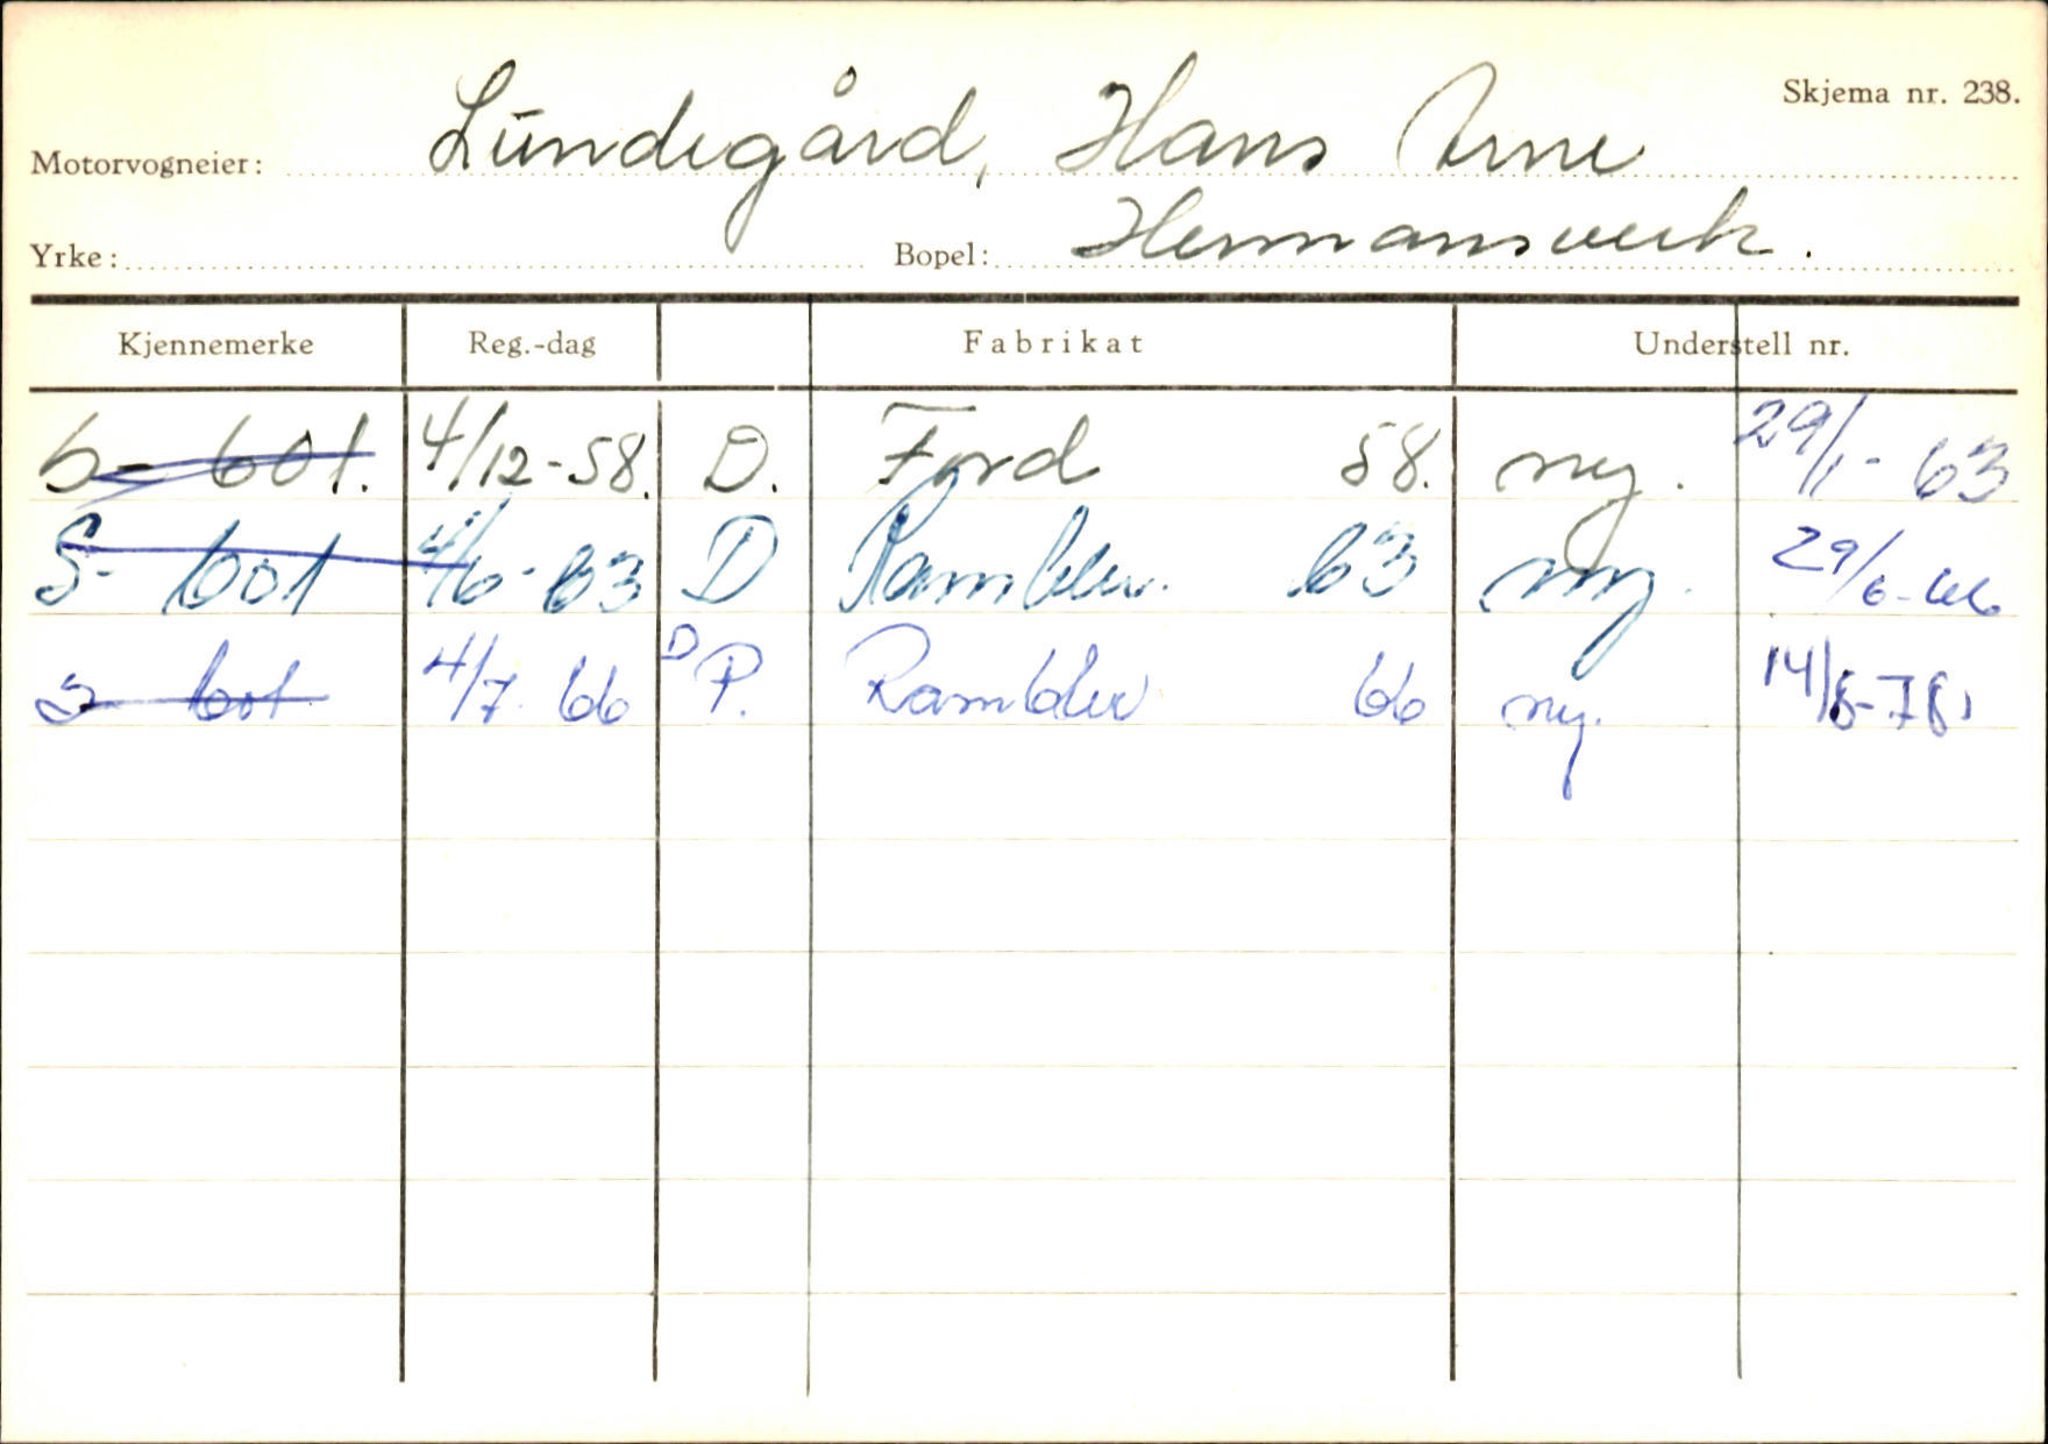 Skjema nr. 238.
Motorvogneier: Lundegård, Hans Arne
Yrke: Bopel: Hermansverk.
Kjennemerke Reg.-dag Fabrikat Understell nr.
S- 601. 4/12-58. D. Ford 58. ny. 29/1-63
S- 601 4/6-63 D Rambler. 63 ny. 29/6-66
S- 601 4/7-66 D P. Rambler 66 ny. 14/8-78